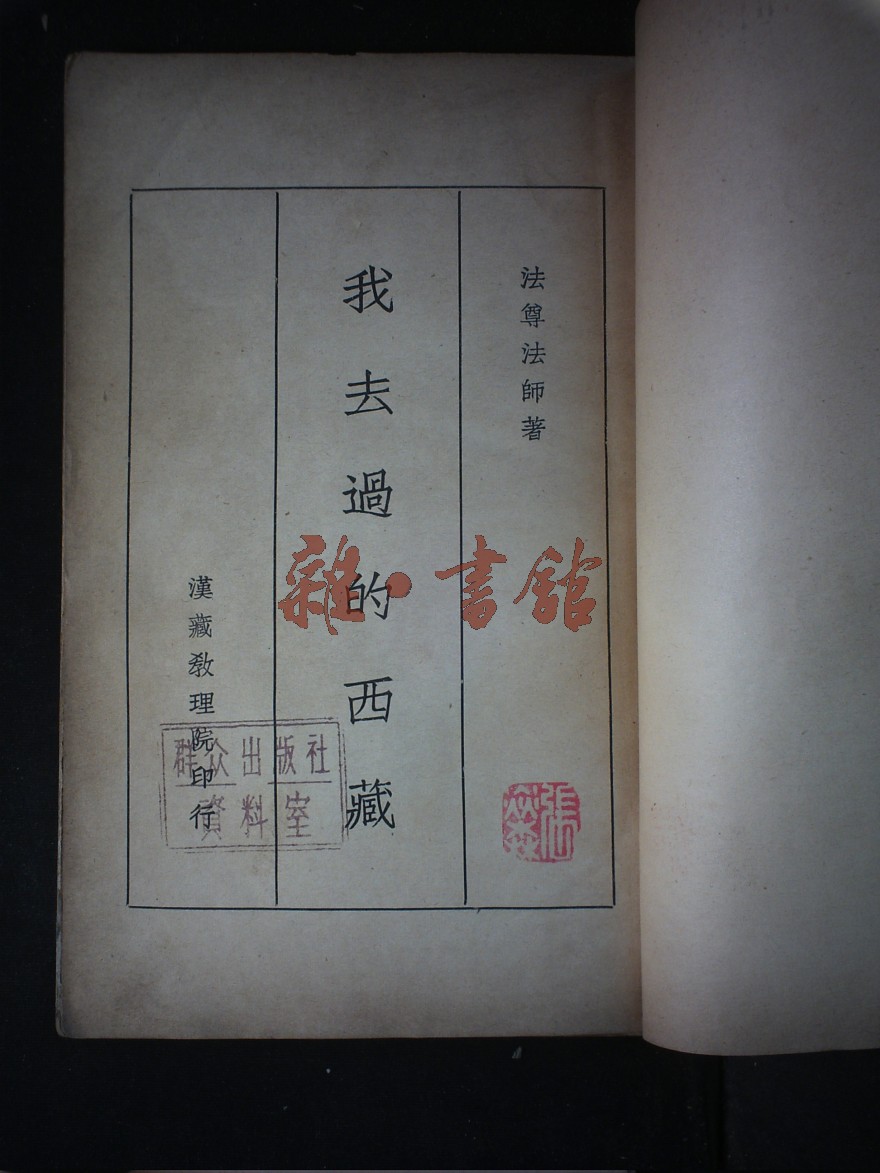 法尊法師著
我去過的西藏
漢藏教理院印行
群众出版社
資料室
雜·書館